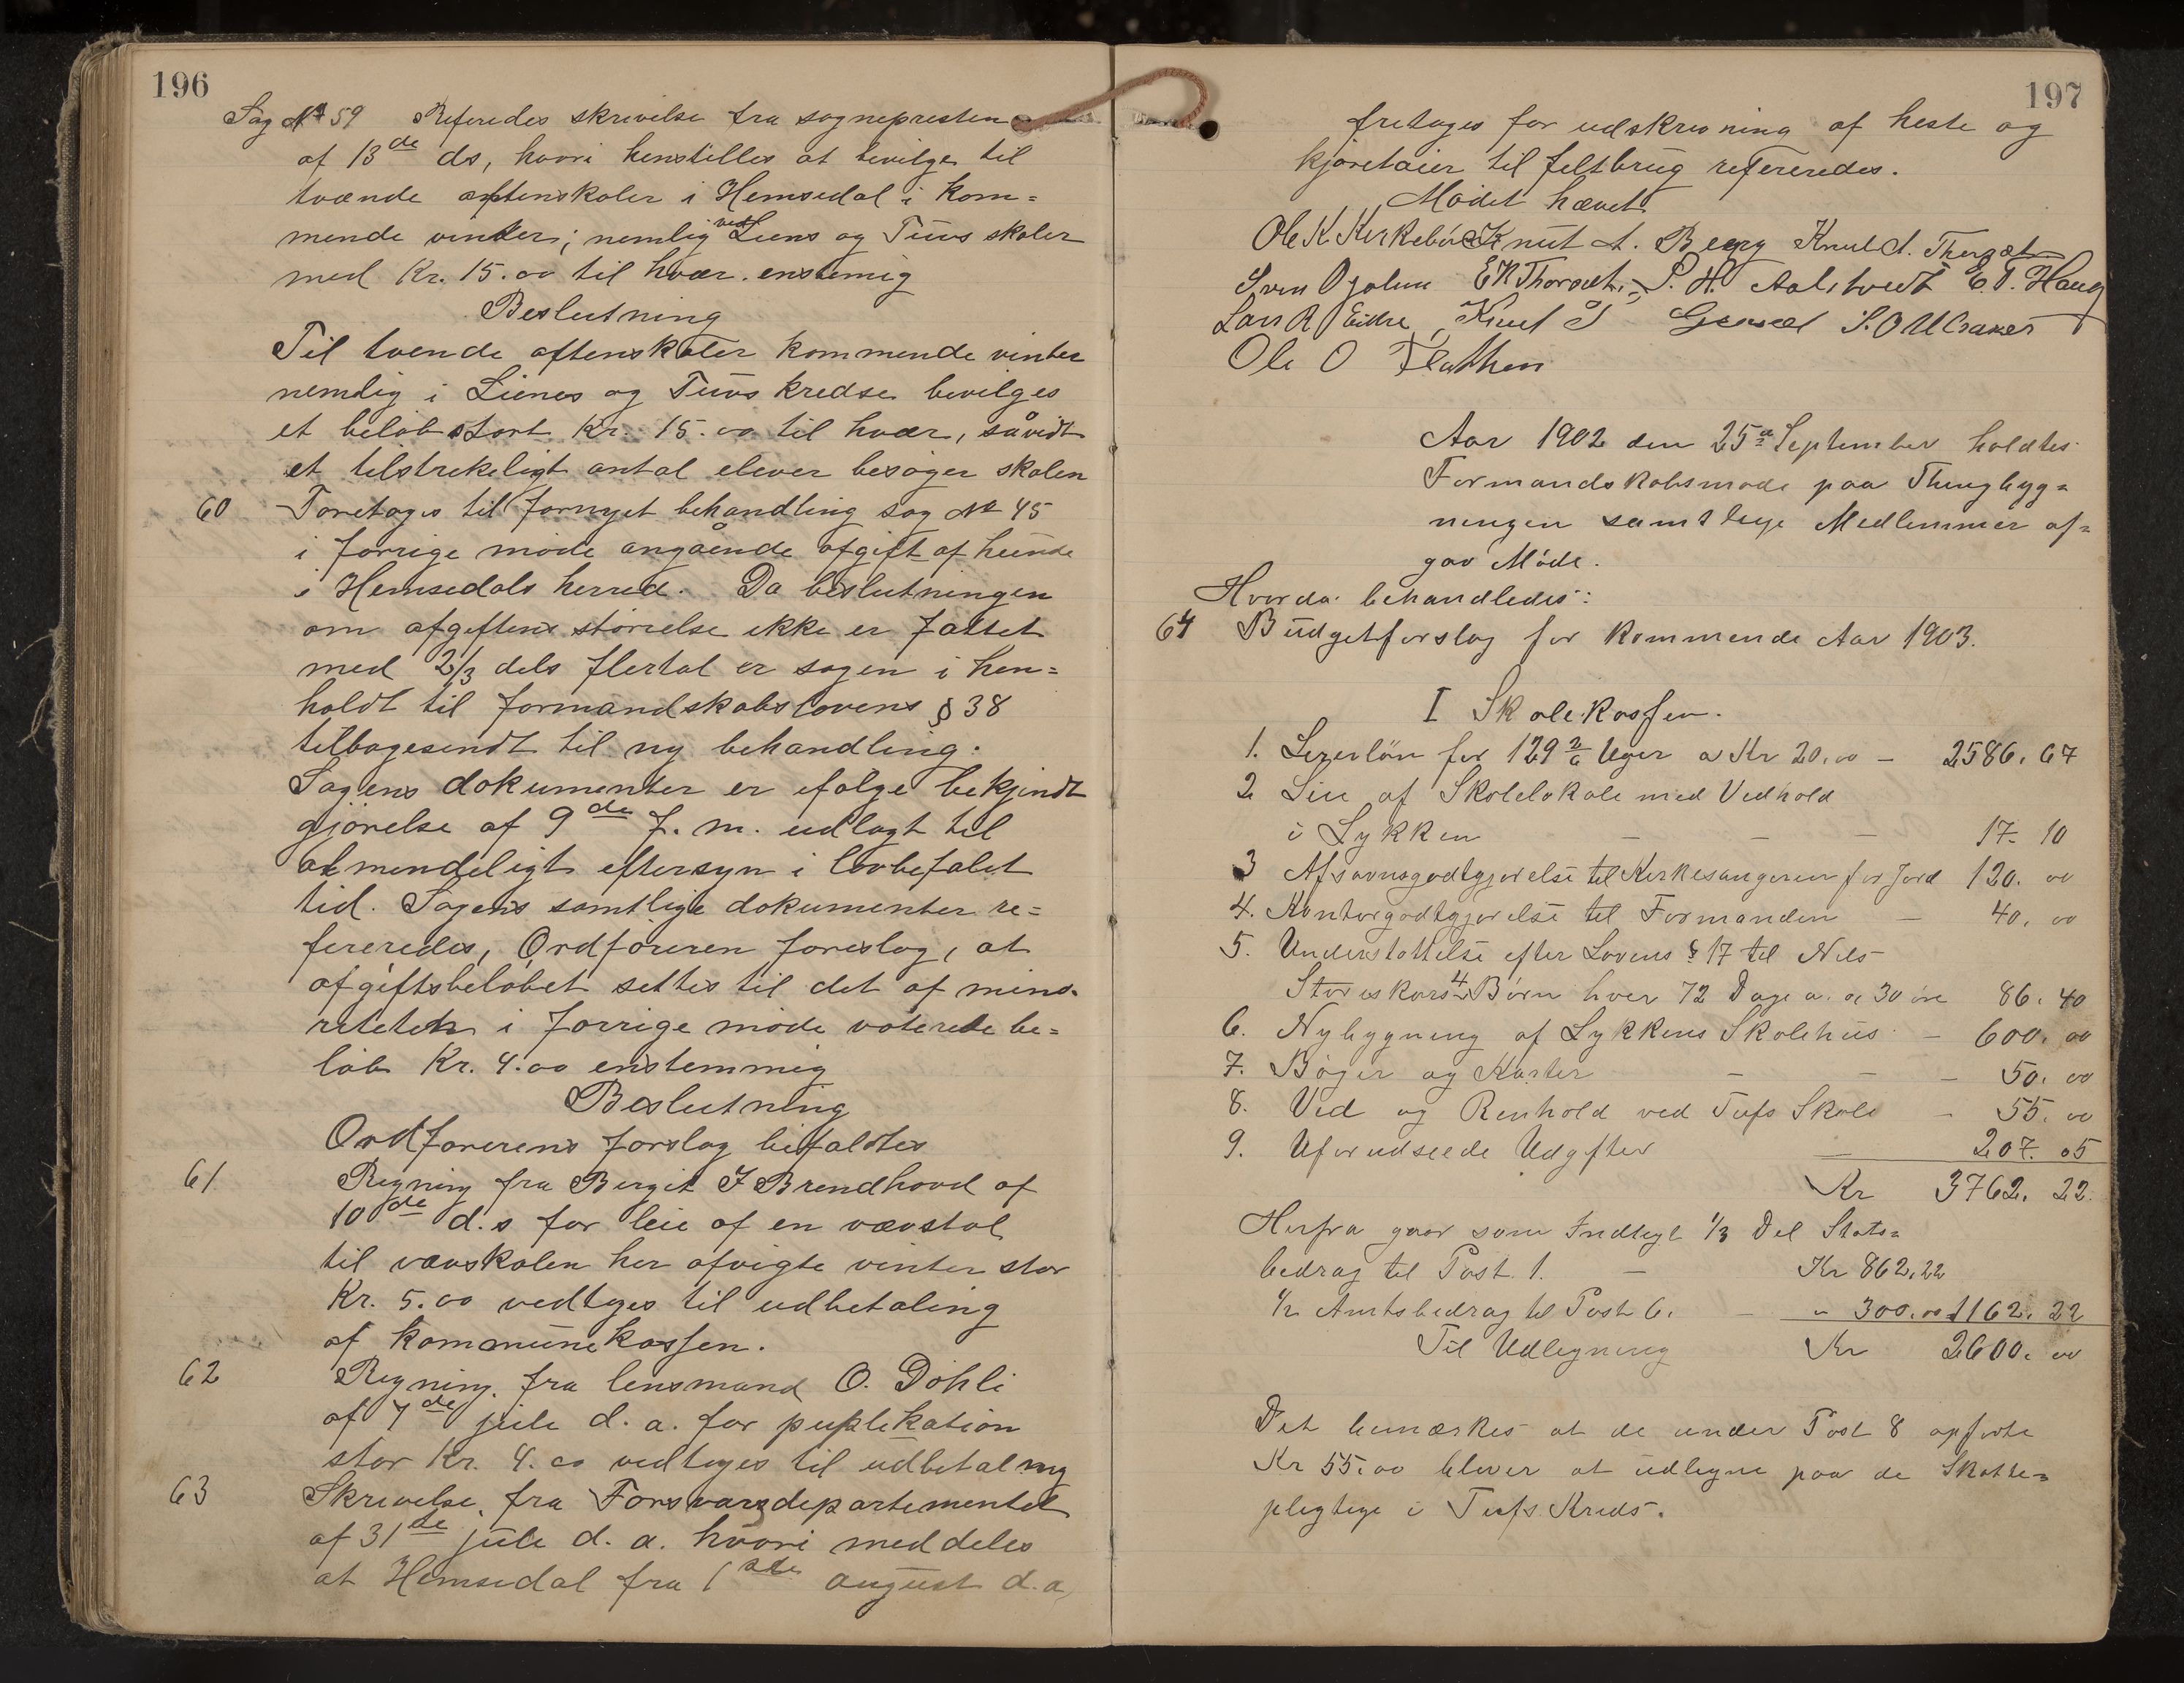 196
Sag № 59 Referedes skrivelse fra sognepresten
af 13de ds, hvori henstilles at bevilge til
tvænde aftenskoler i Hemsedal i kom=
mende vinter; nemlig ved Liens og Tuvs skoler
med Kr. 15.00 til hvær. enstemig
Beslutning
Til tvende aftenskoler kommende vinter
nemlig i Lienes og Tuvs kredse bevilges
et beløb stort Kr. 15.00 til hvær, såvidt
et tilstrekeligt antal elever besøger skolen
60 Foretoges til fornyet behandling sag № 45
i forrige møde angående afgift af hunde
i Hemsedals herred. Da beslutningen
om afgiftens størrelse ikke er fattet
med 2/3 dels flertal er sagen i hen=
holdt til formandskabslovens § 38
tilbagesendt til ny behandling.
Sagens dokumenter er ifølge bekjendt
gjørelse af 9de f. m. udlagt til
almendeligt eftersyn i lovbefalet
tid. Sagens samtlige dokumenter re=
fereredes, Ordføreren foreslog, at
afgiftsbeløbet settes til det af mino-
riteten i forrige møde voterede be=
løb Kr. 4.00 enstemmig
Beslutning
Ordførerens forslag bifaldtes
61 Regning fra Birgit T Brendhovd af
10de d.s for leie af en vævstol
til vævskolen her afvigte vinter stor
Kr. 5.00 vedtoges til udbetaling
af kommunekassen.
62 Regning fra lensmand O. Døhli
af 7de juli d. a. for puplikation
stor Kr. 4.00 vedtoges til udbetaling
63 Skrivelse fra Forsvarsdepartementet
af 31te juli d. a. hvori meddeles
at Hemsedal fra 1ste august d.a
197
fretages for udskrivning af heste og
kjøretøier til feltbrug refereredes.
Mødet hævet
Ole K. Kirkebøe Knut A. Berg Knut A.
Sven O E K Thorset P. H. Aalstvedt E. T. Haug
Lars R Eikre, Knut T S. O Ulsaker
Ole O Flathen
Aar 1902 den 25de September holdtes
Formandskabsmøde paa Thingbyg=
ningen samtlige Medlemmer af=
gav Møde.
Hvorda behandledes:
64 Budgetforslag for kommende Aar 1903.
I Skolekassen.
1. Lærerløn for 129 2/6 Uger a Kr 20.00 — 2586. 67
2 Leie af Skolelokale med Vedhold
i Lykken — — — 17. 10
3 Afsavnsgodtgjørelse til Kirkesangeren for Jord 120. 00
4. Kontorgodtgjørelse til Formanden — 40. 00
5. Understøttelse efter Lovens § 17 til Nils
4 Børn hver 72 Dage a 30 øre 86. 40
6. Nybygning af Lykkens Skolehus — 600. 00
7. Bøger og Karter — — — 50. 00
8. Ved og Renhold ved Tufs Skole — 55. 00
9. Uforudseede Udgifter — 207. 05
Kr 3762. 22.
Herfra gaar som Indtægt 1/3 Del Stats=
bedrag til Post 1. — Kr 862.22
1/2 Amtsbedrag til Post 6. — " 300.00 1162. 22
Til Udligning Kr 2600. 00
Det bemærkes at de under Post 8 opførte
Kr 55.00 bliver at udligne paa de Skatte=
pligtige i Tufs Kreds.